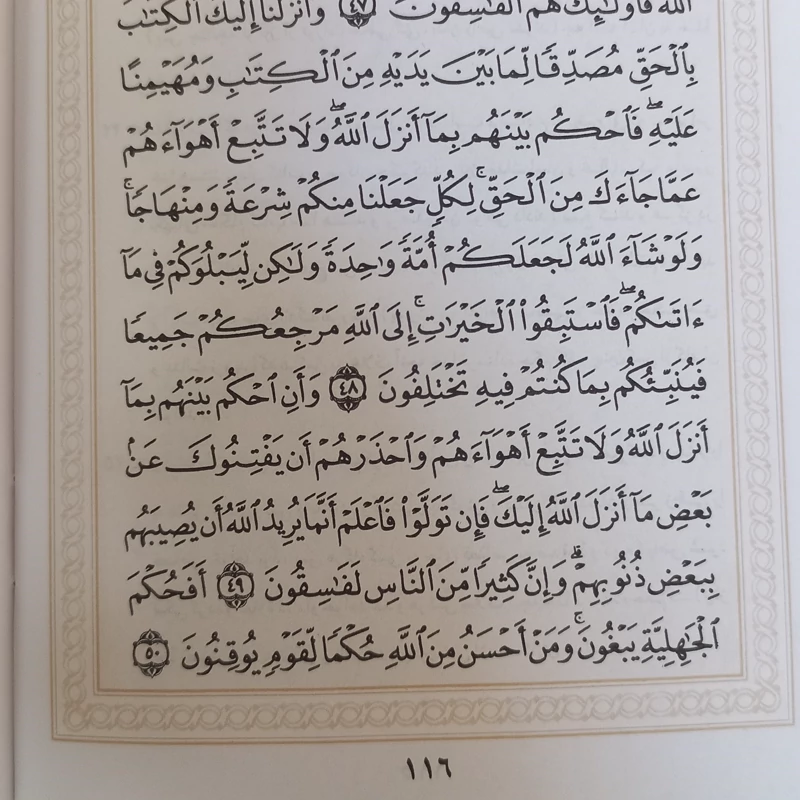 ٱللَّهُ فَأُو۟لَٰٓئِكَ هُمُ ٱلْفَٰسِقُونَ ٤٧ وَأَنزَلْنَآ إِلَيْكَ ٱلْكِتَٰبَ
بِٱلْحَقِّ مُصَدِّقًا لِّمَا بَيْنَ يَدَيْهِ مِنَ ٱلْكِتَٰبِ وَمُهَيْمِنًا
عَلَيْهِۖ فَٱحْكُم بَيْنَهُم بِمَآ أَنزَلَ ٱللَّهُۖ وَلَا تَتَّبِعْ أَهْوَآءَهُمْ
عَمَّا جَآءَكَ مِنَ ٱلْحَقِّۚ لِكُلٍّ جَعَلْنَا مِنكُمْ شِرْعَةً وَمِنْهَاجًاۚ
وَلَوْ شَآءَ ٱللَّهُ لَجَعَلَكُمْ أُمَّةً وَٰحِدَةً وَلَٰكِن لِّيَبْلُوَكُمْ فِى مَآ
ءَاتَىٰكُمْۖ فَٱسْتَبِقُوا۟ ٱلْخَيْرَٰتِۚ إِلَى ٱللَّهِ مَرْجِعُكُمْ جَمِيعًا
فَيُنَبِّئُكُم بِمَا كُنتُمْ فِيهِ تَخْتَلِفُونَ ٤٨ وَأَنِ ٱحْكُم بَيْنَهُم بِمَآ
أَنزَلَ ٱللَّهُ وَلَا تَتَّبِعْ أَهْوَآءَهُمْ وَٱحْذَرْهُمْ أَن يَفْتِنُوكَ عَنۢ
بَعْضِ مَآ أَنزَلَ ٱللَّهُ إِلَيْكَۖ فَإِن تَوَلَّوْا۟ فَٱعْلَمْ أَنَّمَا يُرِيدُ ٱللَّهُ أَن يُصِيبَهُم
بِبَعْضِ ذُنُوبِهِمْۗ وَإِنَّ كَثِيرًا مِّنَ ٱلنَّاسِ لَفَٰسِقُونَ ٤٩ أَفَحُكْمَ
ٱلْجَٰهِلِيَّةِ يَبْغُونَۚ وَمَنْ أَحْسَنُ مِنَ ٱللَّهِ حُكْمًا لِّقَوْمٍ يُوقِنُونَ ٥٠
١١٦